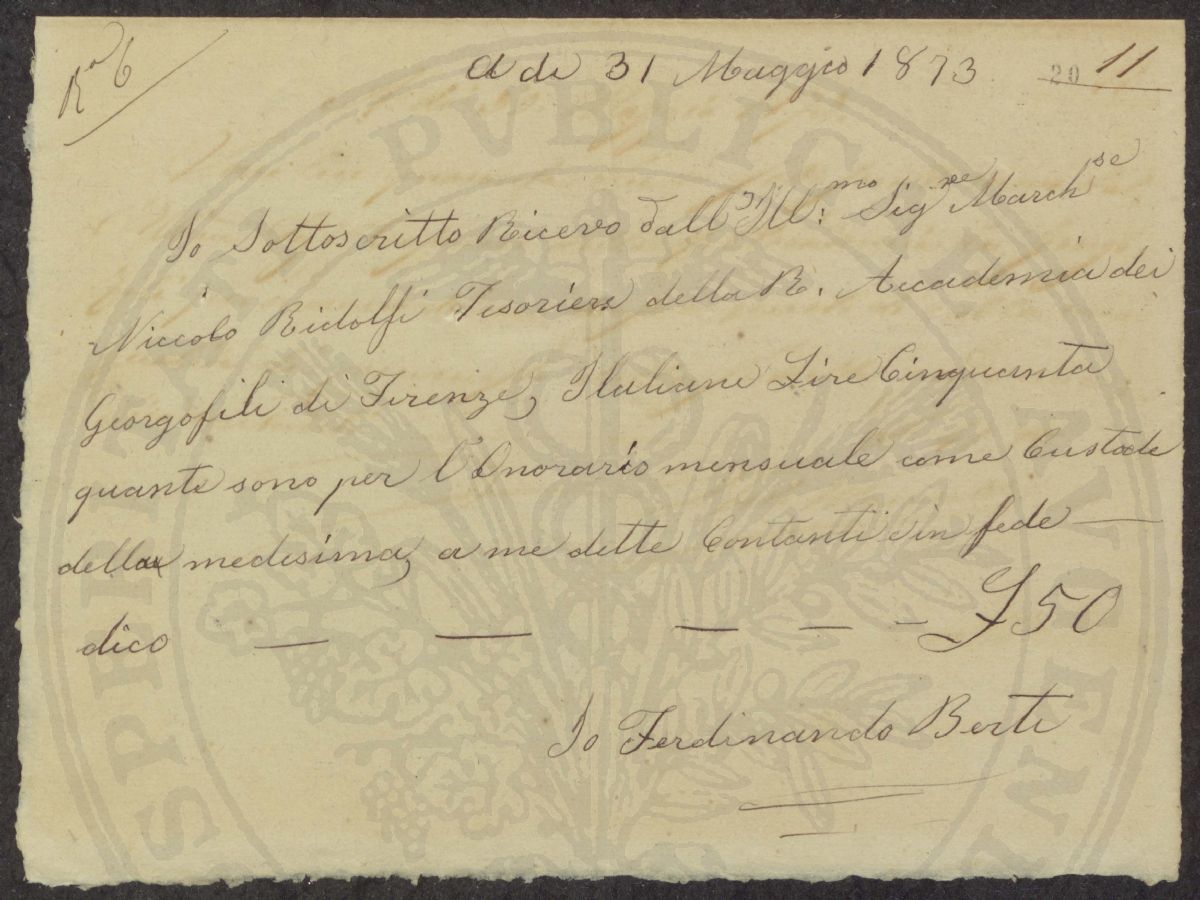 Ra 6
a di 31 Maggio 1873
20 11
Io Sottoscritto Ricevo dall'Ill:mo Sigre Marchse
Niccolo Ridolfi Tesoriere della R. Accademia dei
Georgofili di Firenze, Italiane Lire Cinquanta
quante sono per l'Onorario mensuale come Custode
della medesima, a me dette Contanti in fede —
dico — — — — — £50
Io Ferdinando Berti